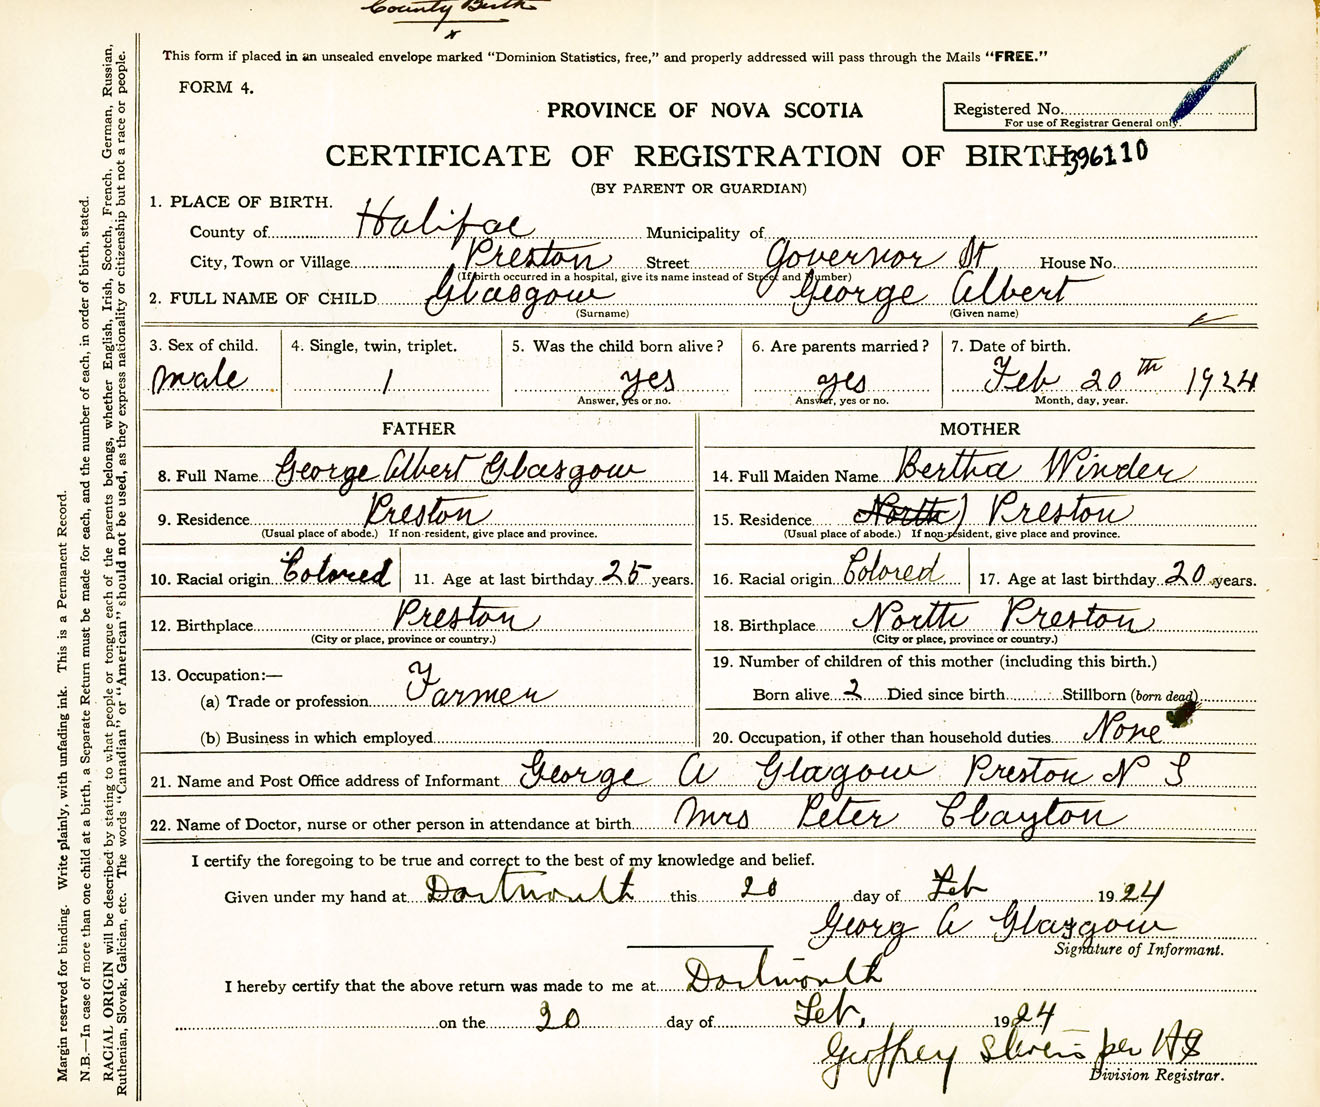 County Birth
This form if placed in an unsealed envelope marked "Dominion Statistics, free," and properly addressed will pass through the Mails "FREE."
FORM 4.
PROVINCE OF NOVA SCOTIA
Registered No.
For use of Registrar General only.
CERTIFICATE OF REGISTRATION OF BIRTH 396110
(BY PARENT OR GUARDIAN)
1. PLACE OF BIRTH.
County of Halifax Municipality of
City, Town or Village Preston Street Governor St House No.
(If birth occurred in a hospital, give its name instead of Street and Number)
2. FULL NAME OF CHILD Glasgow George Albert
(Surname) (Given name)
3. Sex of child. 4. Single, twin, triplet. 5. Was the child born alive? 6. Are parents married? 7. Date of birth.
male 1 yes yes Feb 20th 1924
Answer, yes or no. Answer, yes or no. Month, day, year.
FATHER MOTHER
8. Full Name George Albert Glasgow 14. Full Maiden Name Bertha Winder
9. Residence Preston 15. Residence North) Preston
(Usual place of abode.) If non-resident, give place and province. (Usual place of abode.) If non-resident, give place and province.
10. Racial origin Colored 11. Age at last birthday 25 years. 16. Racial origin Colored 17. Age at last birthday 20 years.
12. Birthplace Preston 18. Birthplace North Preston
(City or place, province or country.) (City or place, province or country.)
13. Occupation:— 19. Number of children of this mother (including this birth.)
(a) Trade or profession Farmer Born alive 2 Died since birth Stillborn (born dead)
(b) Business in which employed 20. Occupation, if other than household duties None
21. Name and Post Office address of Informant George A Glagow Preston N S
22. Name of Doctor, nurse or other person in attendance at birth Mrs Peter Clayton
I certify the foregoing to be true and correct to the best of my knowledge and belief.
Given under my hand at Dartmouth this 20 day of Feb 1924
Georg A Glasgow
Signature of Informant.
I hereby certify that the above return was made to me at Dartmouth
on the 20 day of Feb, 1924
Geoffrey Stevens per HS
Division Registrar.
Margin reserved for binding. Write plainly, with unfading ink. This is a Permanent Record.
N.B.—In case of more than one child at a birth, a Separate Return must be made for each, and the number of each, in order of birth, stated.
RACIAL ORIGIN will be described by stating to what people or tongue each of the parents belongs, whether English, Irish, Scotch, French, German, Russian,
Ruthenian, Slovak, Galician, etc. The words "Canadian" or "American" should not be used, as they express nationality or citizenship but not a race or people.